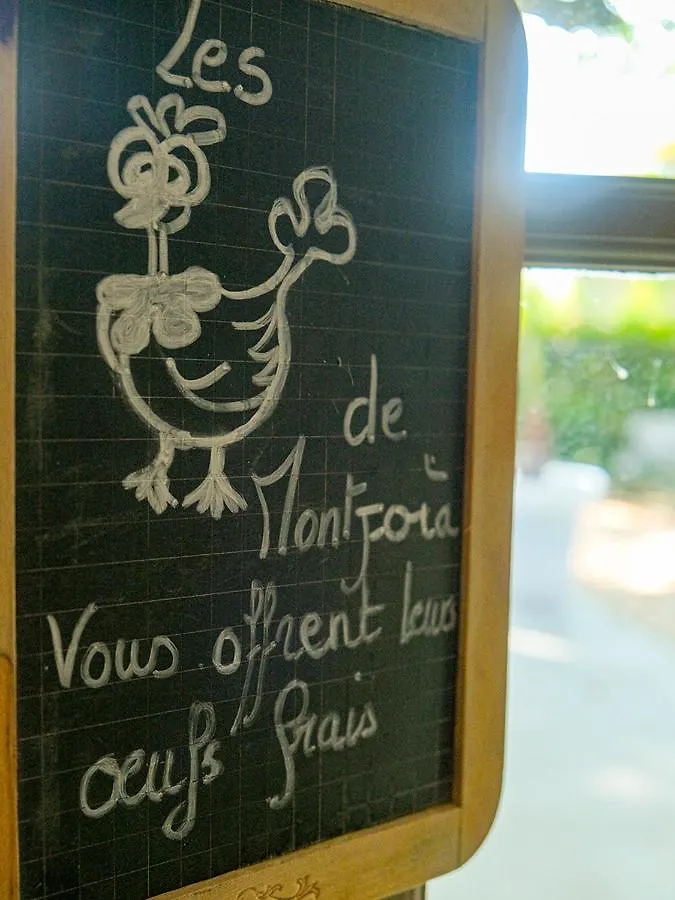 Les
de
Montjoià
Vous offrent leurs
oeufs frais